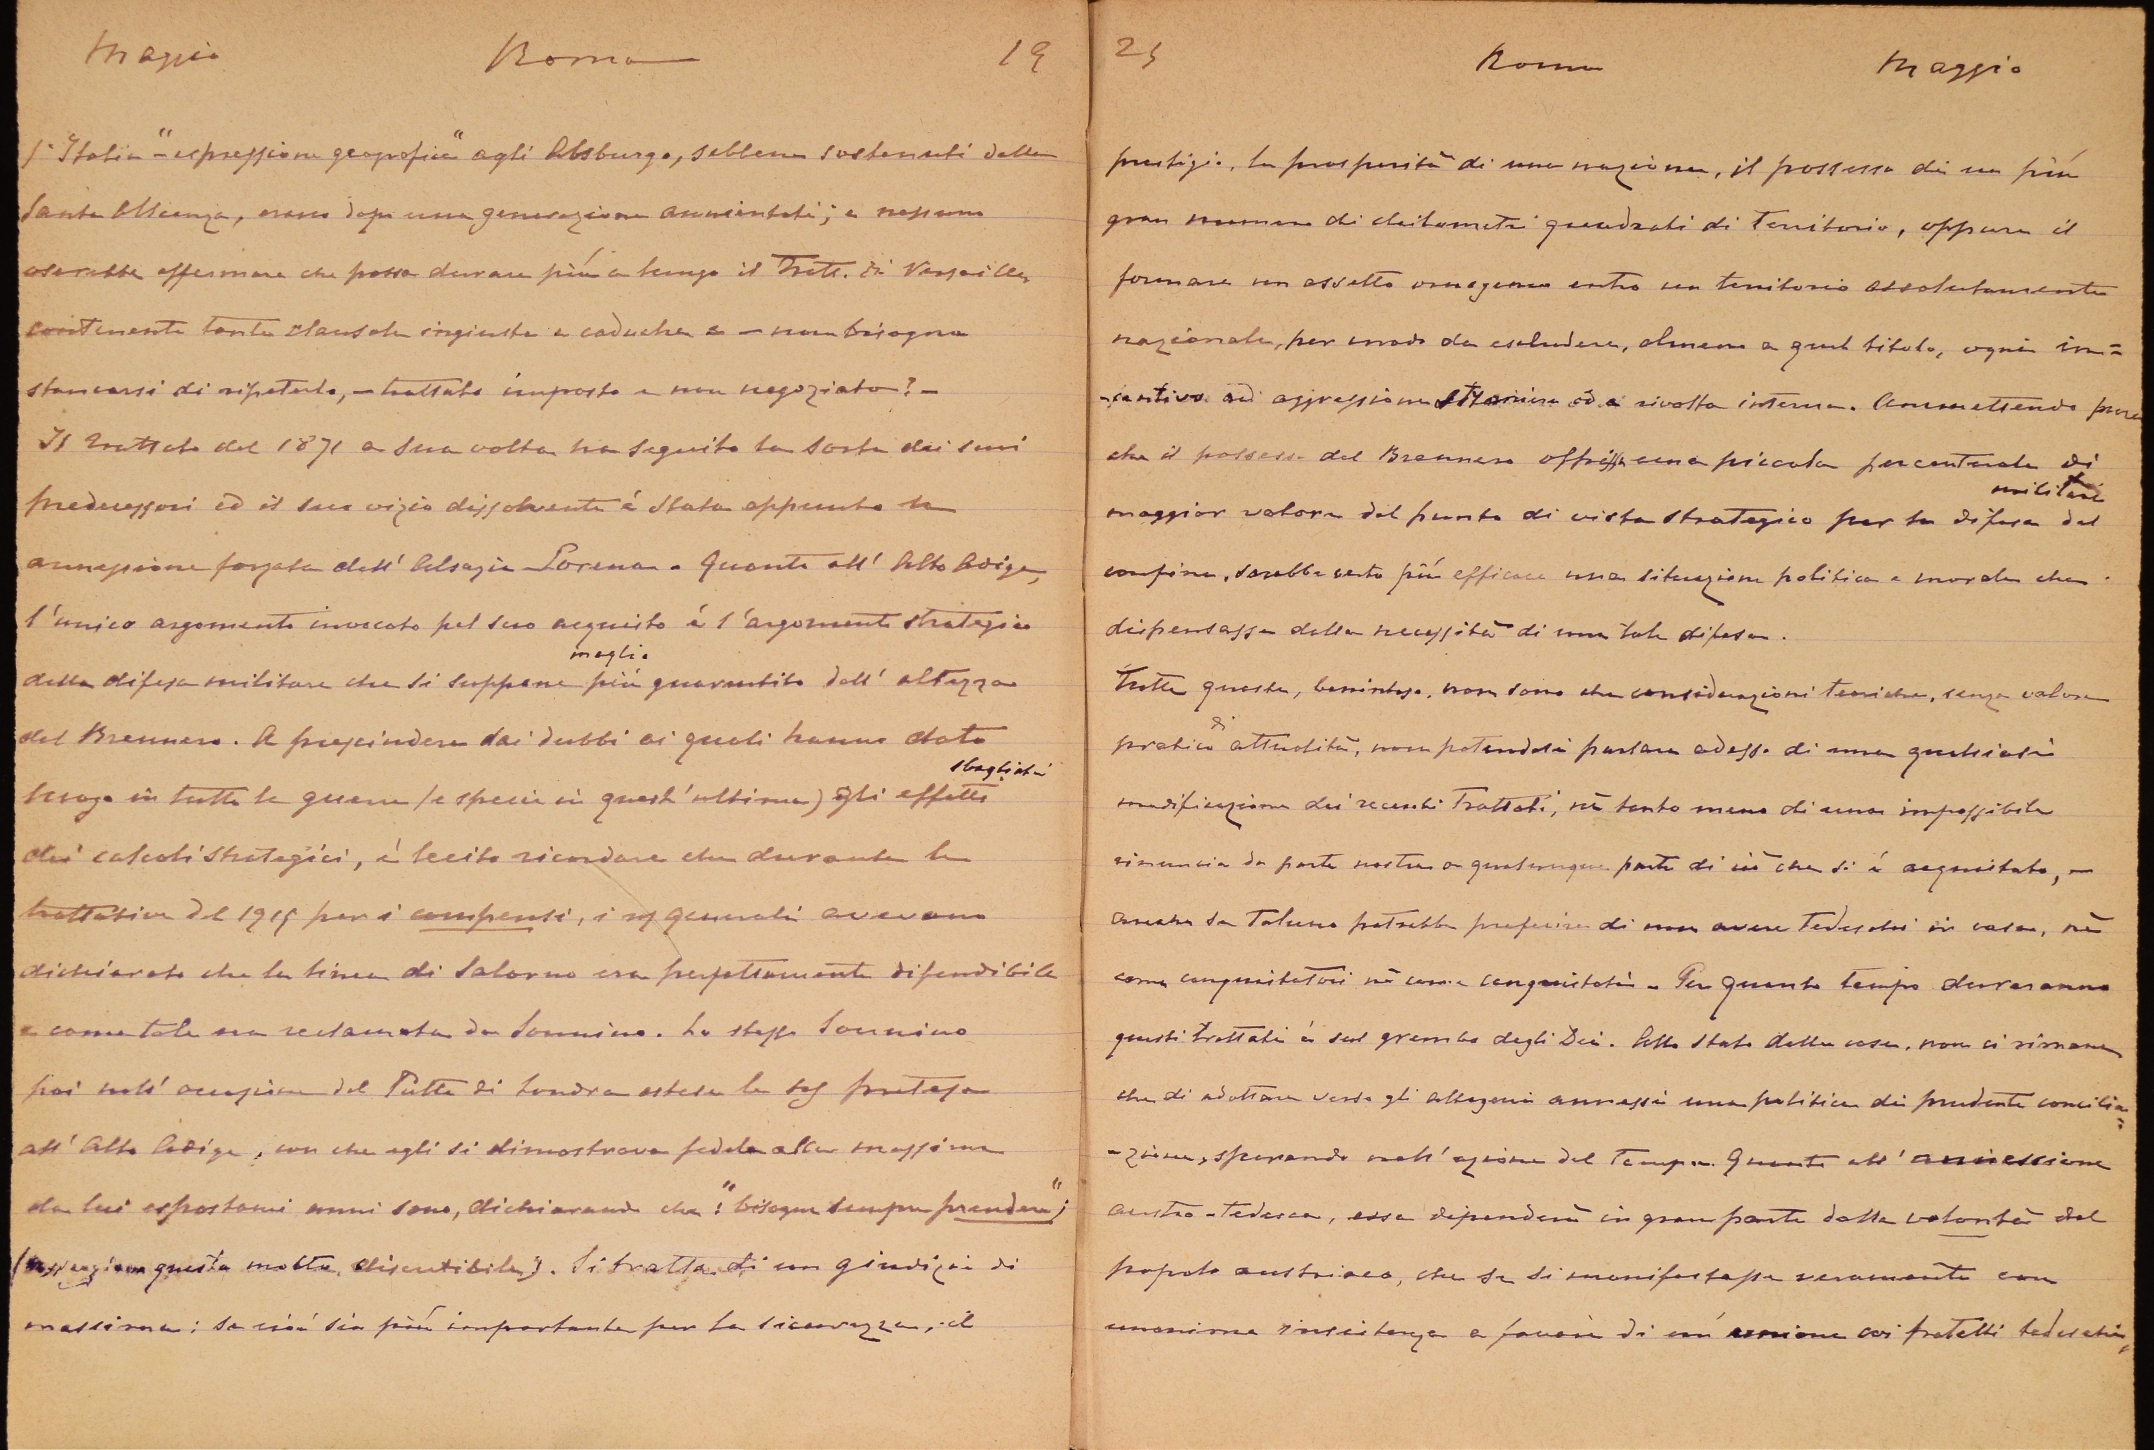 Maggio Roma 19
l'Italia "-espressione geografica" agli Absburgo, sebbene sostenuti dalla
Santa Alleanza, erano dopo una generazione annientati; e nessuno
oserebbe affermare che possa durare più a lungo il Tratt. di Versailles,
contenente tante clausole ingiuste e caduche e - non bisogna
stancarsi di ripeterlo, - trattato imposto e non negoziato? -
Il trattato del 1871 a sua volta ha seguito la sorte dei suoi
predecessori ed il suo vizio dissolvente é stata appunto la
annessione forzata dell' Alsazia-Lorena. Quanto all' Alto Adige,
l'unico argomento invocato pel suo acquisto é l'argomento strategico
meglio
della difesa militare che si suppone più guarentito dall' altezza
del Brennero. A prescindere dai dubbi ai quali hanno dato
sbagliati
luogo in tutte le guerre (e specie in quest' ultima) gli effetti
dei calcoli strategici, é lecito ricordare che durante le
trattative del 1915 per i compensi, i ns generali avevano
dichiarato che la linea di Salorno era perfettamente difendibile
e come tale era reclamata da Sonnino. Lo stesso Sonnino
poi nell' occasione del Patto di Londra estese la sua pretesa
all' Alto Adige, con che egli si dimostrava fedele alla massima
da lui espostami anni sono, dichiarando che: "bisogna sempre prendere";
questa molto discutibile). Si tratta di un giudizio di
massima: se cioé sia più importante per la sicurezza, il
25 Roma Maggio
prestigio, la prosperità di una nazione, il possesso di un più
gran numero di chilometri quadrati di territorio, oppure il
formare un assetto omogeneo entro un territorio assolutamente
nazionale, per modo da escludere, almeno a quel titolo, ogni in=
-centivo ad aggressione straniera od a rivolta interna. Ammettendo pure
che il possesso del Brennero offrisse una piccola percentuale di
militare
maggior valore dal punto di vista strategico per la difesa del
confine, sarebbe certo più efficace una situazione politica e morale che
dispensasse dalla necessità di una tale difesa.
Tutte queste, beninteso, non sono che considerazioni teoriche, senza valore
di
pratico attualità, non potendosi parlare adesso di una qualsiasi
modificazione dei recenti Trattati, nè tanto meno di una impossibile
rinuncia da parte nostra a qualunque parte di ciò che si é acquistato, -
anche se taluno potrebbe preferire di non avere tedeschi in casa, nè
come conquistatori nè come conquistati. Per quanto tempo dureranno
questi trattati é sul grembo degli Dei. Allo stato delle cose, non ci rimane
che di adottare verso gli allogeni annessi una politica di prudente concilia=
-zione, sperando nell' azione del tempo. Quanto all' annessione
austro-tedesca, essa dipenderà in gran parte dalla volontà del
popolo austriaco, che se si manifestasse veramente con
unanime insistenza a favore di un' unione coi fratelli tedeschi,